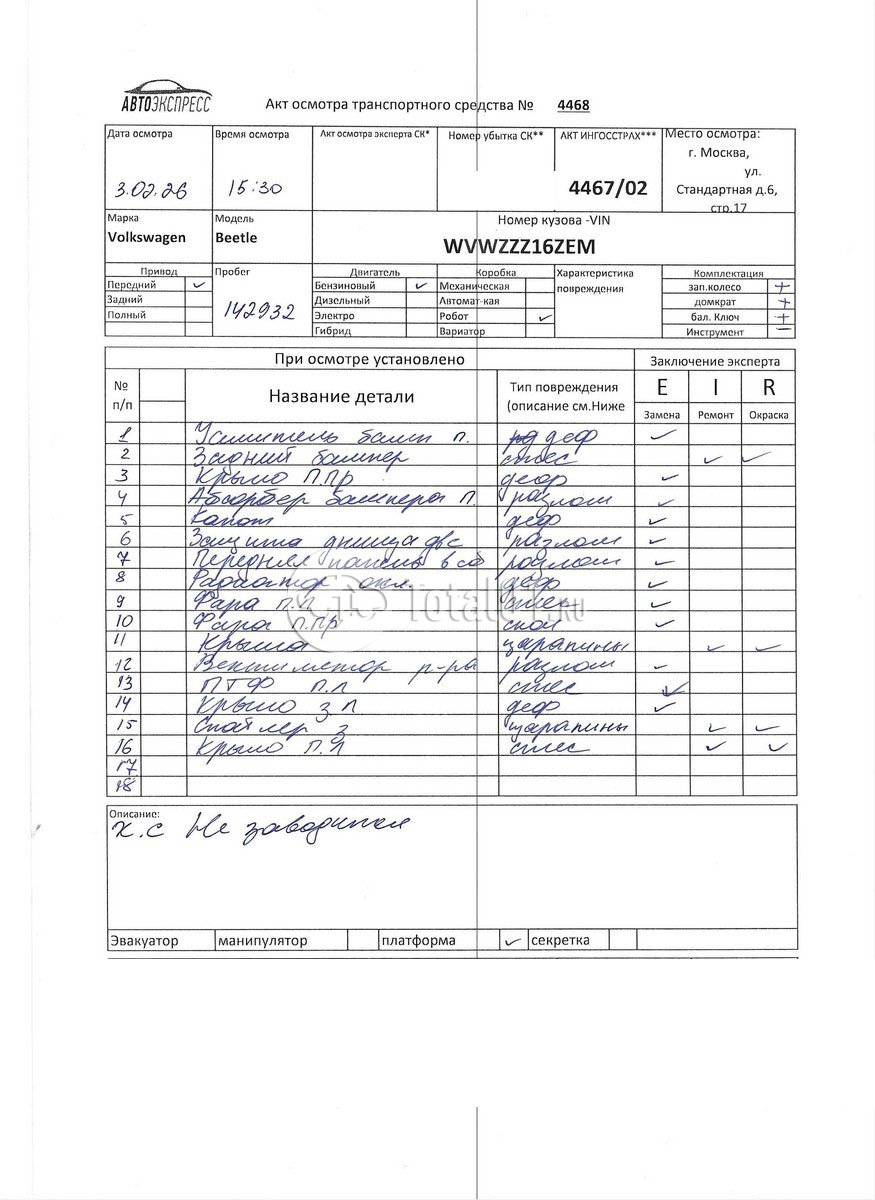 АВТОЭКСПРЕСС
Акт осмотра транспортного средства № 4468
Дата осмотра Время осмотра Акт осмотра эксперта СК* Номер убытка СК** АКТ ИНГОССТРАХ*** Место осмотра:
г. Москва,
ул.
3.02.26 15:30 4467/02 Стандартная д.6,
стр.17
Марка Модель Номер кузова -VIN
Volkswagen Beetle WVWZZZ16ZEM
Привод Пробег Двигатель Коробка Характеристика Комплектация
Передний ✓ Бензиновый ✓ Механическая повреждения зап.колесо +
Задний Дизельный Автомат-кая домкрат +
Полный 142932 Электро Робот ✓ бал. Ключ +
Гибрид Вариатор Инструмент —
При осмотре установлено Заключение эксперта
№ п/п Название детали Тип повреждения (описание см.Ниже E I R
Замена Ремонт Окраска
1 Усилитель бамп п. деф ✓
2 Задний бампер стес ✓ ✓
3 Крыло ППР деф ✓
4 Абсорбер бампера П. разлом ✓
5 Капот деф ✓
6 Защита днища двс разлом ✓
7 Передняя панель в сб разлом ✓
8 Радиатор охл. деф ✓
9 Фара п.л стес ✓
10 Фара п.пр скол ✓
11 Крыша царапины ✓ ✓
12 Вентилятор р-ра разлом ✓
13 ПТФ п.л стес ✓
14 Крыло з л деф ✓
15 Спойлер з царапины ✓ ✓
16 Крыло п.л стес ✓ ✓
17
18
Описание:
х.с Не заводится
Эвакуатор манипулятор платформа ✓ секретка
Total01.RU